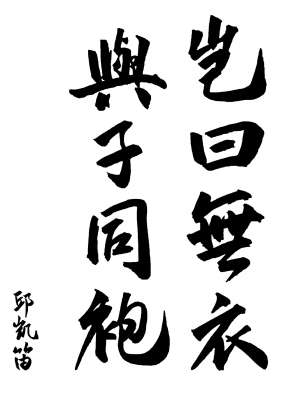 豈曰無衣
與子同袍
邱凱笛